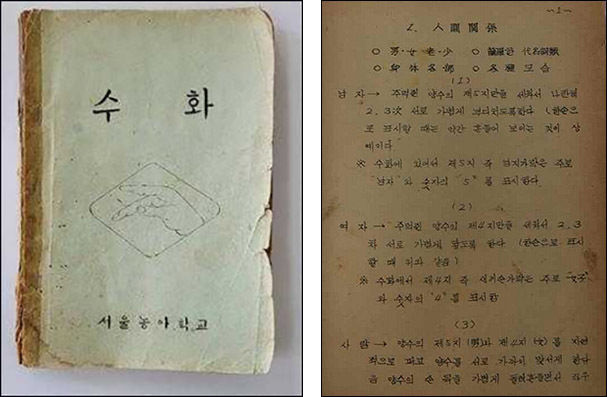 수 화
서울농아학교
-1-
2. 人間關係
○ 男·女·老·少 ○ 代名詞類
○ 身体各部 ○ 各種 모습
(1)
남 자 → 주먹쥔 양수의 제5지만을 세워서 나란히
2, 3次 서로 가볍게 한다 (한손으
로 표시할 때는 약간 흔들어 보이는 것이 상
례이다.
※ 수화에 있어서 제5지 즉 엄지가락은 주로
"남자"와 숫자의 "5"를 표시한다.
(2)
여 자 → 주먹쥔 양수의 제4지만을 세워서 2, 3
차 서로 가볍게 닿도록 한다 (한손으로 표시
할 때 위와 같음)
※ 수화에서 제4지 즉 새끼손가락은 주로 "女子"
와 숫자의 "4"를 표시함
(3)
사 람 → 양수의 제5지(男)와 제4지(女)를 자연
적으로 펴고 양수를 서로 가까이 맞서게 한다
음 양수의 손 목을 가볍게